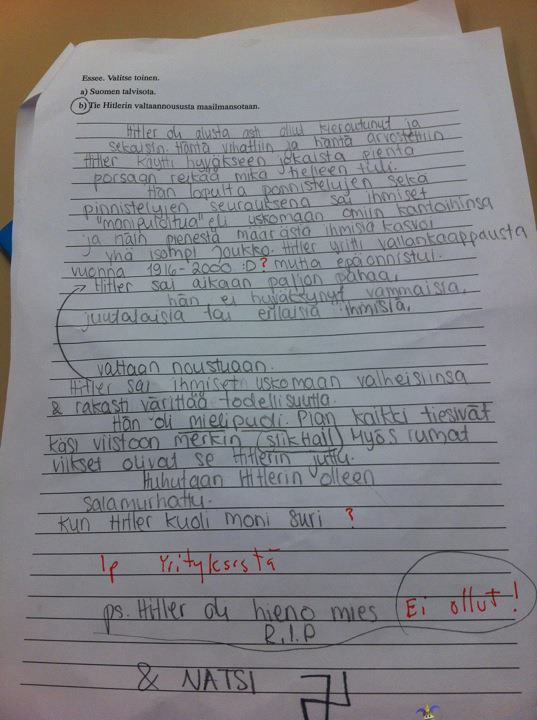 Essee. Valitse toinen.
a) Suomen talvisota.
b) Tie Hitlerin valtaannoususta maailmansotaan.
Hitler oli alusta asti ollut kieroutunut ja
sekaisin. Häntä vihattiin ja häntä arvostettiin
Hitler käytti hyväkseen jokaista pientä
porsaan reikää mikä helleen tuli.
Hän lopulta ponnistelujen sekä
pinnistelujen seurauksena sai ihmiset
"manipuloitua" eli uskomaan omiin kantoihinsa
ja näin pienestä määrästä ihmisiä kasvoi
yhä isompi joukko. Hitler yritti vallankaappausta
vuonna 1916-2000 :D ? mutta epäonnistui.
Hitler sai aikaan paljon pahaa,
hän ei hyväksynyt vammaisia,
juutalaisia tai erilaisia ihmisiä,
valtaan noustuaan.
Hitler sai ihmiset uskomaan valheisiinsa
& rakasti värittää todellisuutta.
Hän oli mielipuoli. Pian kaikki tiesivät
käsi viistoon merkin (siikHail) Myös rumat
viikset olivat se Hitlerin juttu.
Huhutaan Hitlerin olleen
salamurhattu.
Kun Hitler kuoli moni suri ?
1p Yrityksestä
ps. Hitler oli hieno mies Ei ollut!
R.I.P
& NATSI